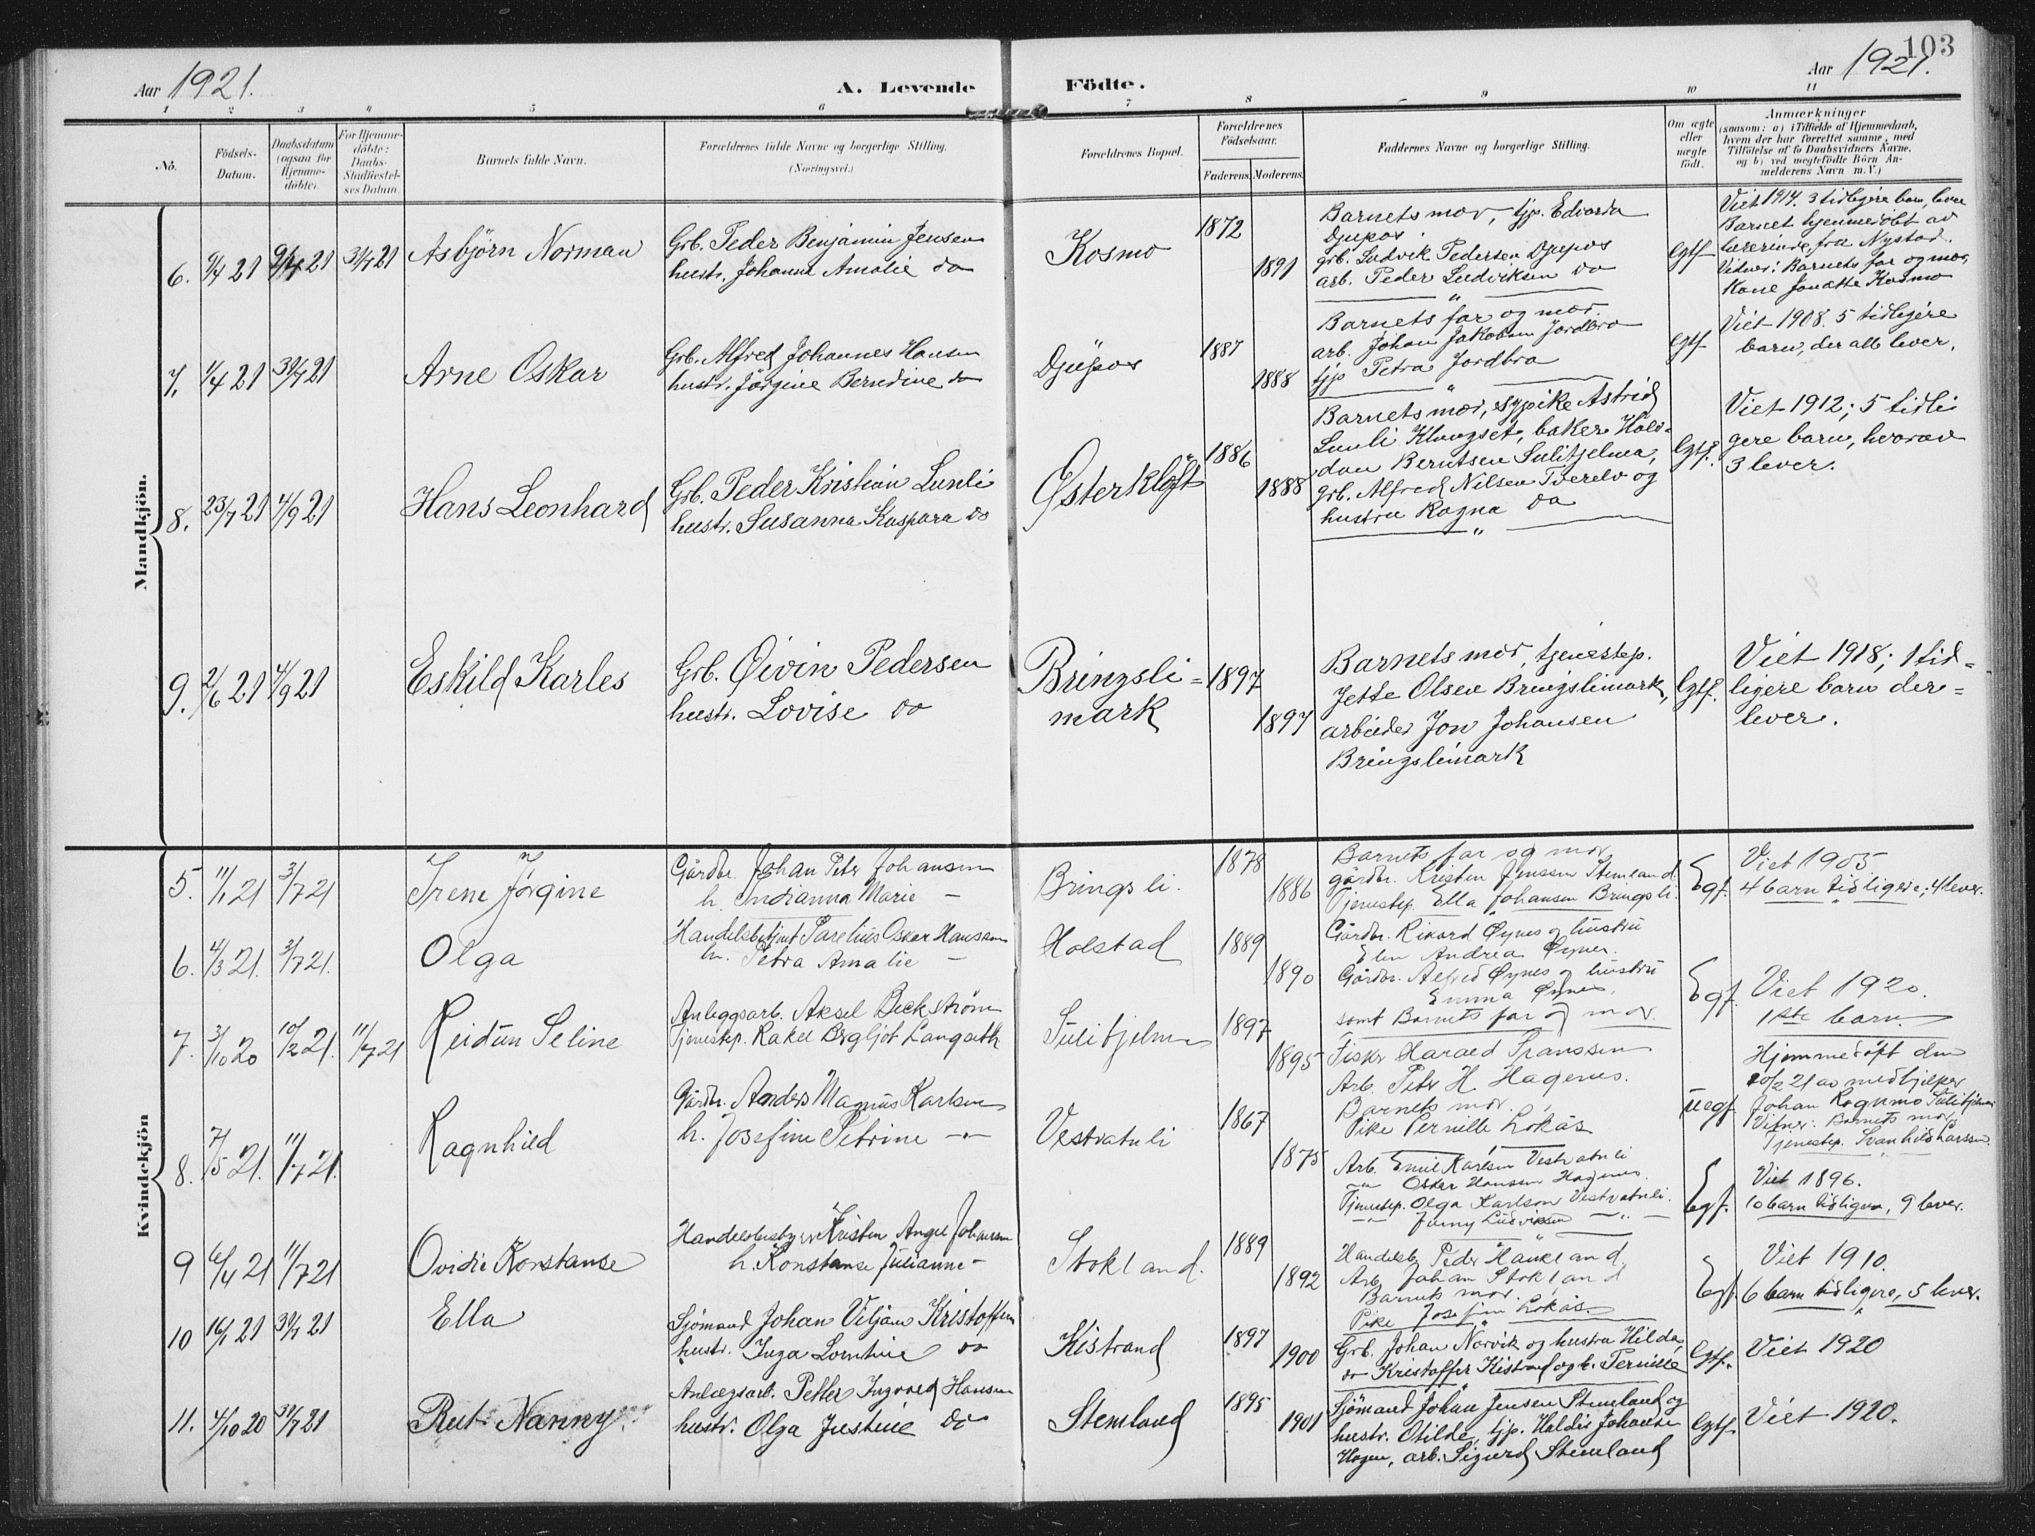 103
Aar 1921.
A. Levende
Födte.
Aar 1921.
1 2 3 4 5 6 7 8 9 10 11
No.
Födsels-Datum.
Daabsdatum (ogsaa for Hjemme-döbte).
For Hjemme-döbte: Daabs-Stadfæstel-ses Datum.
Barnets fulde Navn.
Forældrenes fulde Navne og borgerlige Stilling. (Næringsvei.)
Forældrenes Bopæl.
Forældrenes Födselsaar.
Faderens. Moderens.
Faddernes Navne og borgerlige Stilling.
Om ægte eller uægte født.
Anmærkninger
(saasom: a) i Tilfælde af Hjemmedaab,
hvem der har forrettet samme, med
Tilföielse af to Daabsvidners Navne,
og b) ved uegtefödte Börn An-
melderens Navn m. V.)
Mandkjön.
6. 9/4 21 9/4 21 31/7 21 Asbjörn Norman
Grb. Peder Benjamin Jensen
hustr. Johanne Amalie do
Kosmo
1872
1891
Barnets mor, tjp. Edvarda
Djupos
grb. Ludvik Pedersen Djupos
arb. Peder Ludviksen do
Egtf
Viet 1914. 3 tidligere barn, lever
Barnet hjemmedöbt av
lærerinde fra Nystad.
Vidner: Barnets far og mor,
Kone Jonette Kosmo
7. 1/4 21 31/7 21 Arne Oskar
Grb. Alfred Johannes Hansen
hustr. Jörgine Berndine do
Djupos
1887
1888
Barnets far og mor.
arb. Johan Jakobsen Jordbro
tjp Petra Jordbro
Egtf
Viet 1908. 5 tidligere
barn, der alle lever.
8. 23/7 21 4/9 21 Hans Leonhard
Grb. Peder Kristian Lunli
hustr. Susanna Kaspara do
Østerkløft
1886
1888
Barnets mor, sypike Astrid
Lunli Klungset, baker Halv-
dan Berntsen Sulitjelma,
grb. Alfred Nilsen Tverelv og
hustru Ragna do
Egtf.
Viet 1912; 5 tidli
gere barn, hvorav
3 lever.
9. 2/6 21 4/9 21 Eskild Karles
Grb. Øivin Pedersen
hustr. Lovise do
Bringsli-
mark
1897
1897
Barnets mor, tjenestep.
Jette Olsen Bringslimark,
arbeider Jon Johansen
Bringslimark
Egtf.
Viet 1918; 1 tid-
ligere barn der-
lever.
Kvindekjön
5. 11/1 21 3/7 21 Irene Jørgine
Gårdbr. Johan Peter Johansen
h. Indianna Marie —
Bringsli.
1878
1886
Barnets far og mor
gårdbr. Kristen Jenssen Stemland.
Tjenestep. Ella Johansen Bringsli.
Egf.
Viet 1905
4 barn tidligere; 4 lever.
6. 4/3 21. 3/7 21. Olga
Handelsbetjent Parelius Oskar Hanssen
h. Petra Amalie —
Holstad
1889
1890
Gårdbr. Rikard Øynes og hustru
Elen Andrea Øynes.
Gårdbr. Alfred Øynes og hustru
Emma Øynes,
samt Barnets far og mor.
Egf.
Viet 1920.
1ste barn.
7. 3/10 20 10/2 21. 11/7 21 Reidun Seline
Anleggsarb. Aksel Beckstrøm
Tjenestep. Rakel Bergljot Langseth
Sulitjelma
1897
1895
Fisker Harald Franssen
Arb. Peter H. Hagenes.
Barnets mor.
Pike Pernille Lokås
Uegf
Hjemmedöpt den
10/2 21 av medhjelper
Johan Rognmo Sulitjelma
Vitner: Barnets mor,
Tjenestep. Svanhild Larssen.
8. 7/5 21. 11/7 21. Ragnhild
Gårdbr. Anders Magnus Karlsen
h. Josefine Petrine —
Vestvatnli
1867
1875
Arb. Emil Karlsen Vestvatnli
— Oskar Hansen Hagenes
Tjenestep. Olga Karlsen Vestvatnli.
— Jenny Ludviksen —
Egf.
Viet 1896.
10 barn tidligere, 9 lever.
9 6/4 21 11/7 21 Ovidie Konstanse
Handelsbestyrer Kristen Angel Johansen
h. Konstanse Julianne —
Stokland.
1889
1892
Handelsb. Peder Haukland,
Arb. Johan Stokland
Barnets mor.
Pike Josefine Lokås.
Egf.
Viet 1910.
6 barn tidligere, 5 lever.
10 16/1 21 31/7 21 Ella
Sjömand Johan Viljam Kristoffersen
hustr. Inga Lorntine do
Kistrand
1897
1900
Grb. Johan Norvik og hustru Hilda,
do Kristoffer Kistrand og h. Pernille
Egtf.
Viet 1920
11. 4/10 20 31/7 21 Rut Nanny
Anlægsarb. Petter Ingvard Hansen
hustr. Olga Justine do
Stemland
1895
1901
Sjömand Johan Jensen Stemland og
hustr. Otilde, tjp. Haldis Johansen
Hagen, arb. Sigurd Stemland
Egtf.
Viet 1920.